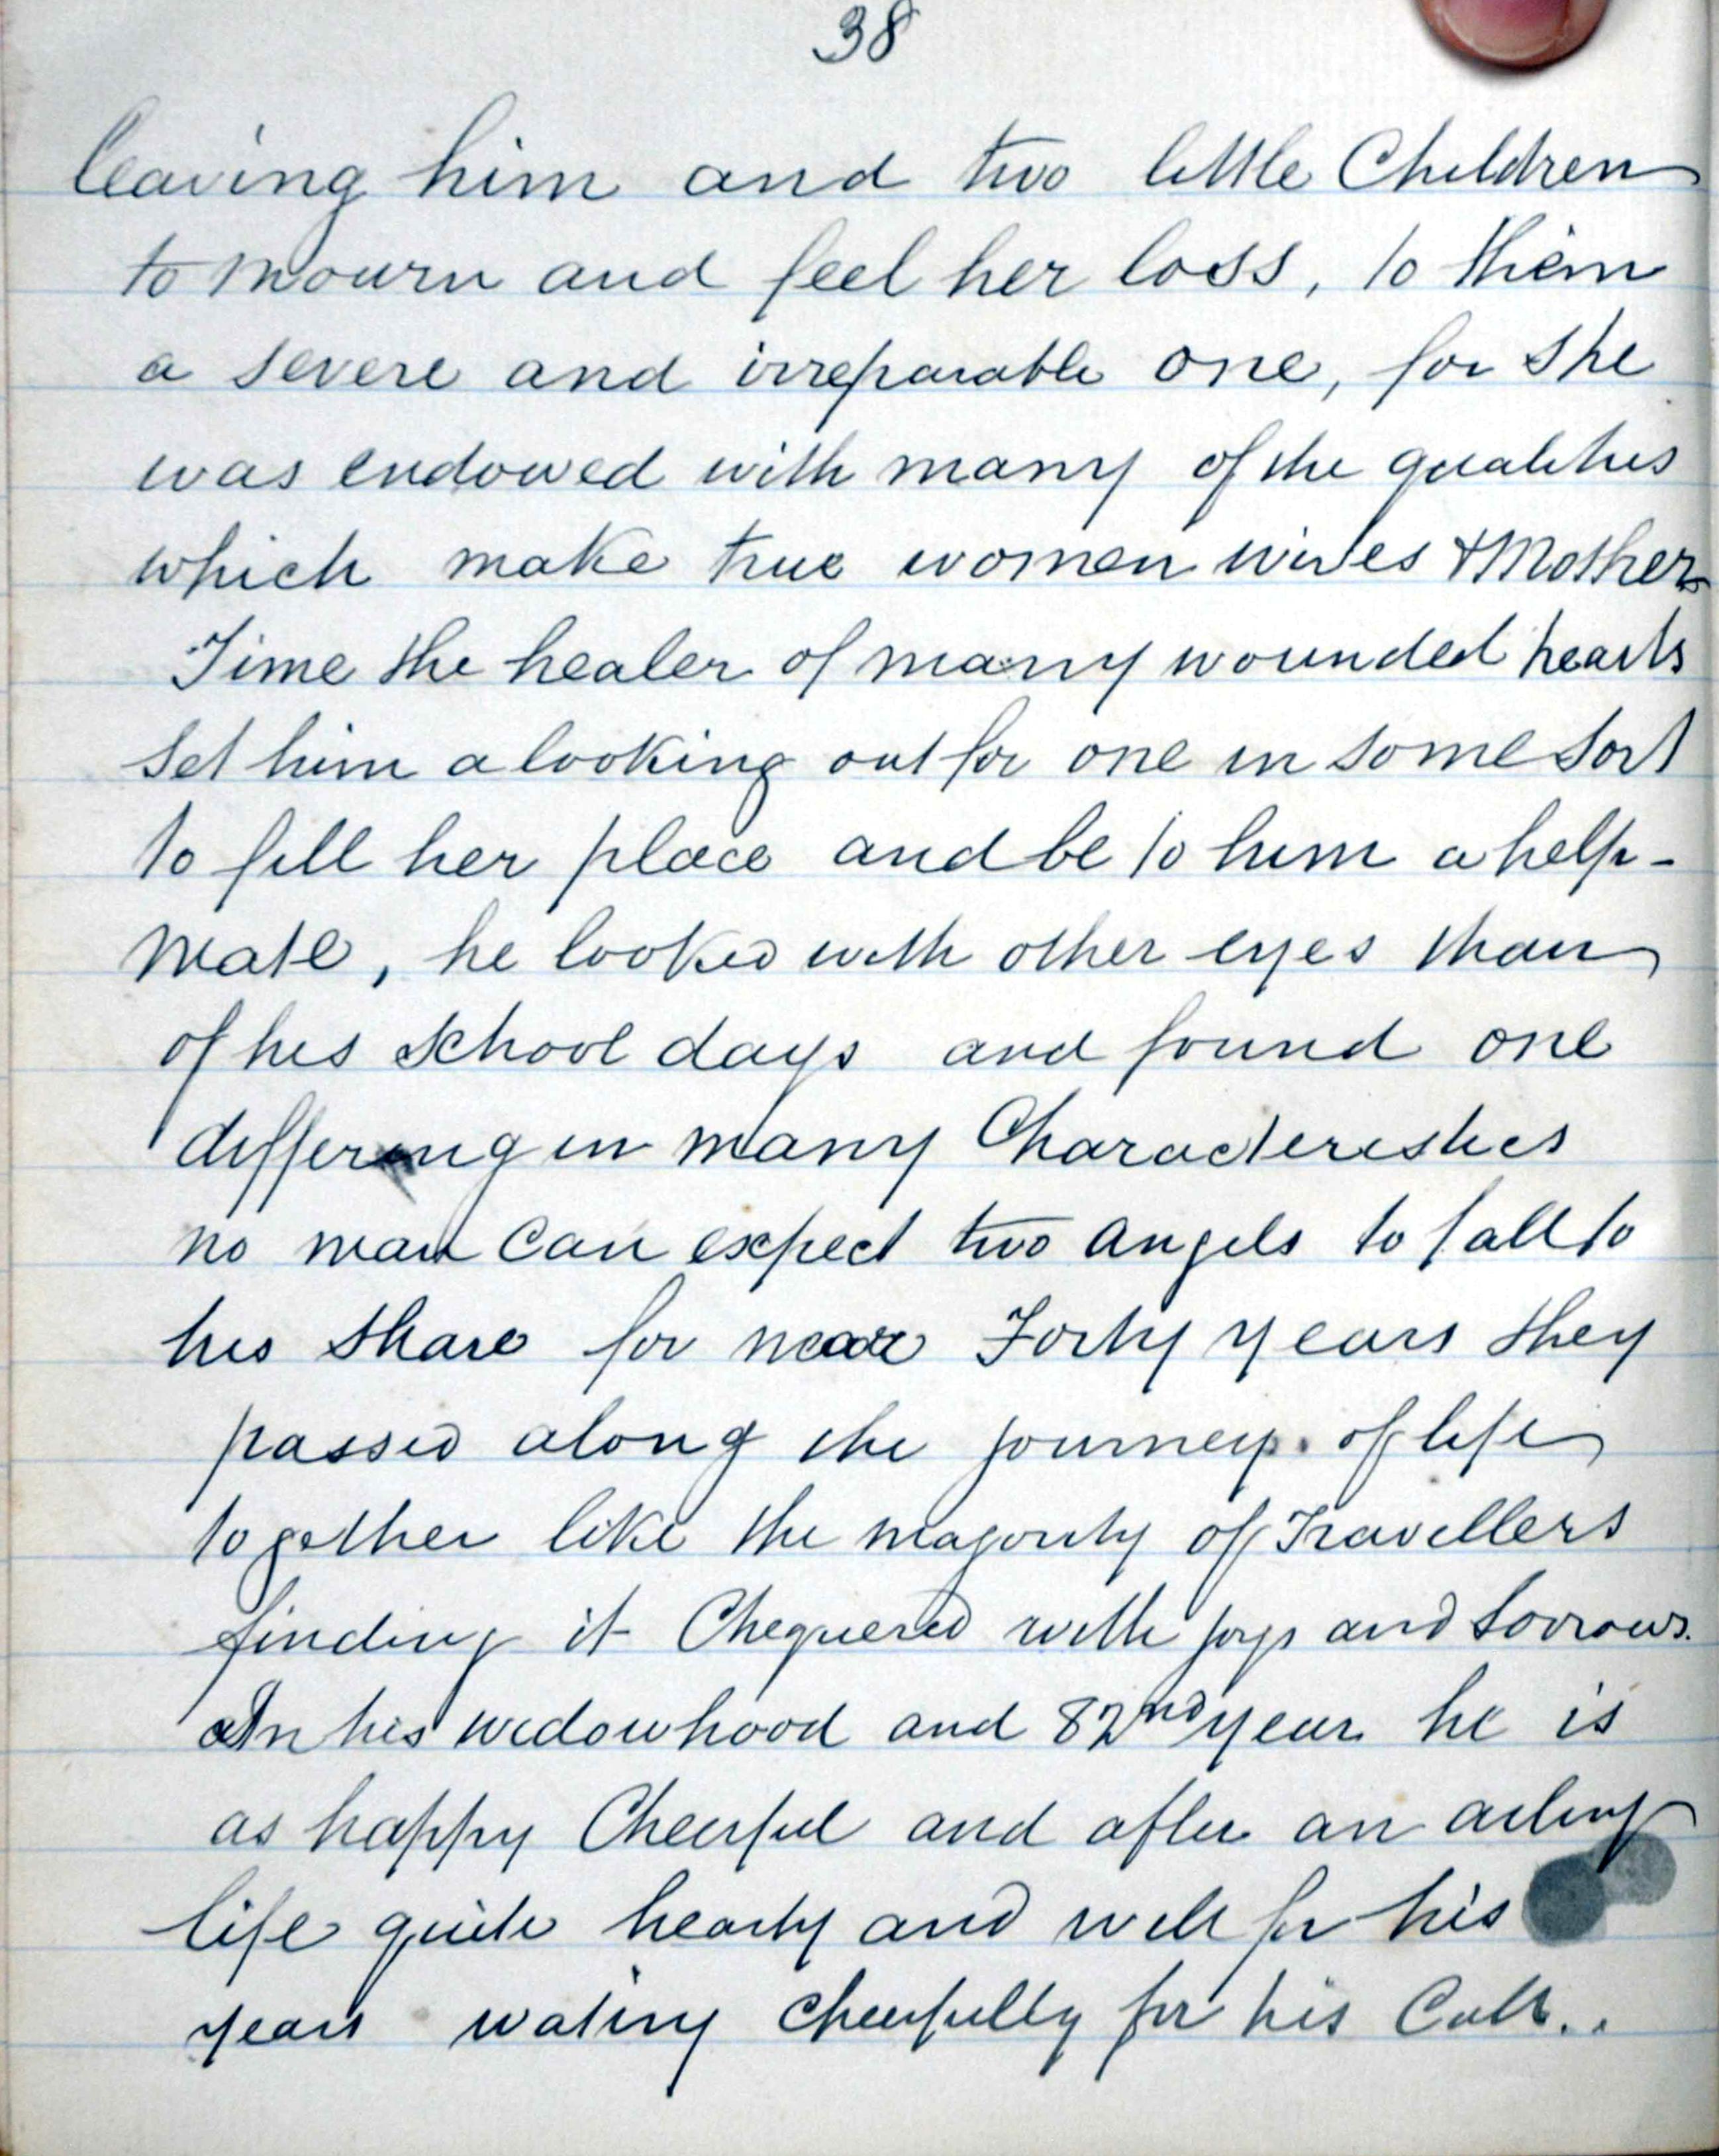 38
leaving him and two little Children
to mourn and feel her loss, to them
a severe and irreparable one, for she
was endowed with many of the qualities
which make true women wives & Mothers
Time the healer of many wounded hearts
set him a looking out for one in some sort
to fill her place and be to him a help-
mate, he looked with other eyes than
of his school days and found one
differing in many Characteristics
no man can expect two angels to fall to
his share for near Forty years they
passed along the journey of life
together like the majority of Travellers
finding it Chequered with joys and sorrows.
In his widowhood and 82nd year he is
as happy Cheerful and after an
life quite hearty and well for his
years wating cheerfully for his Call..